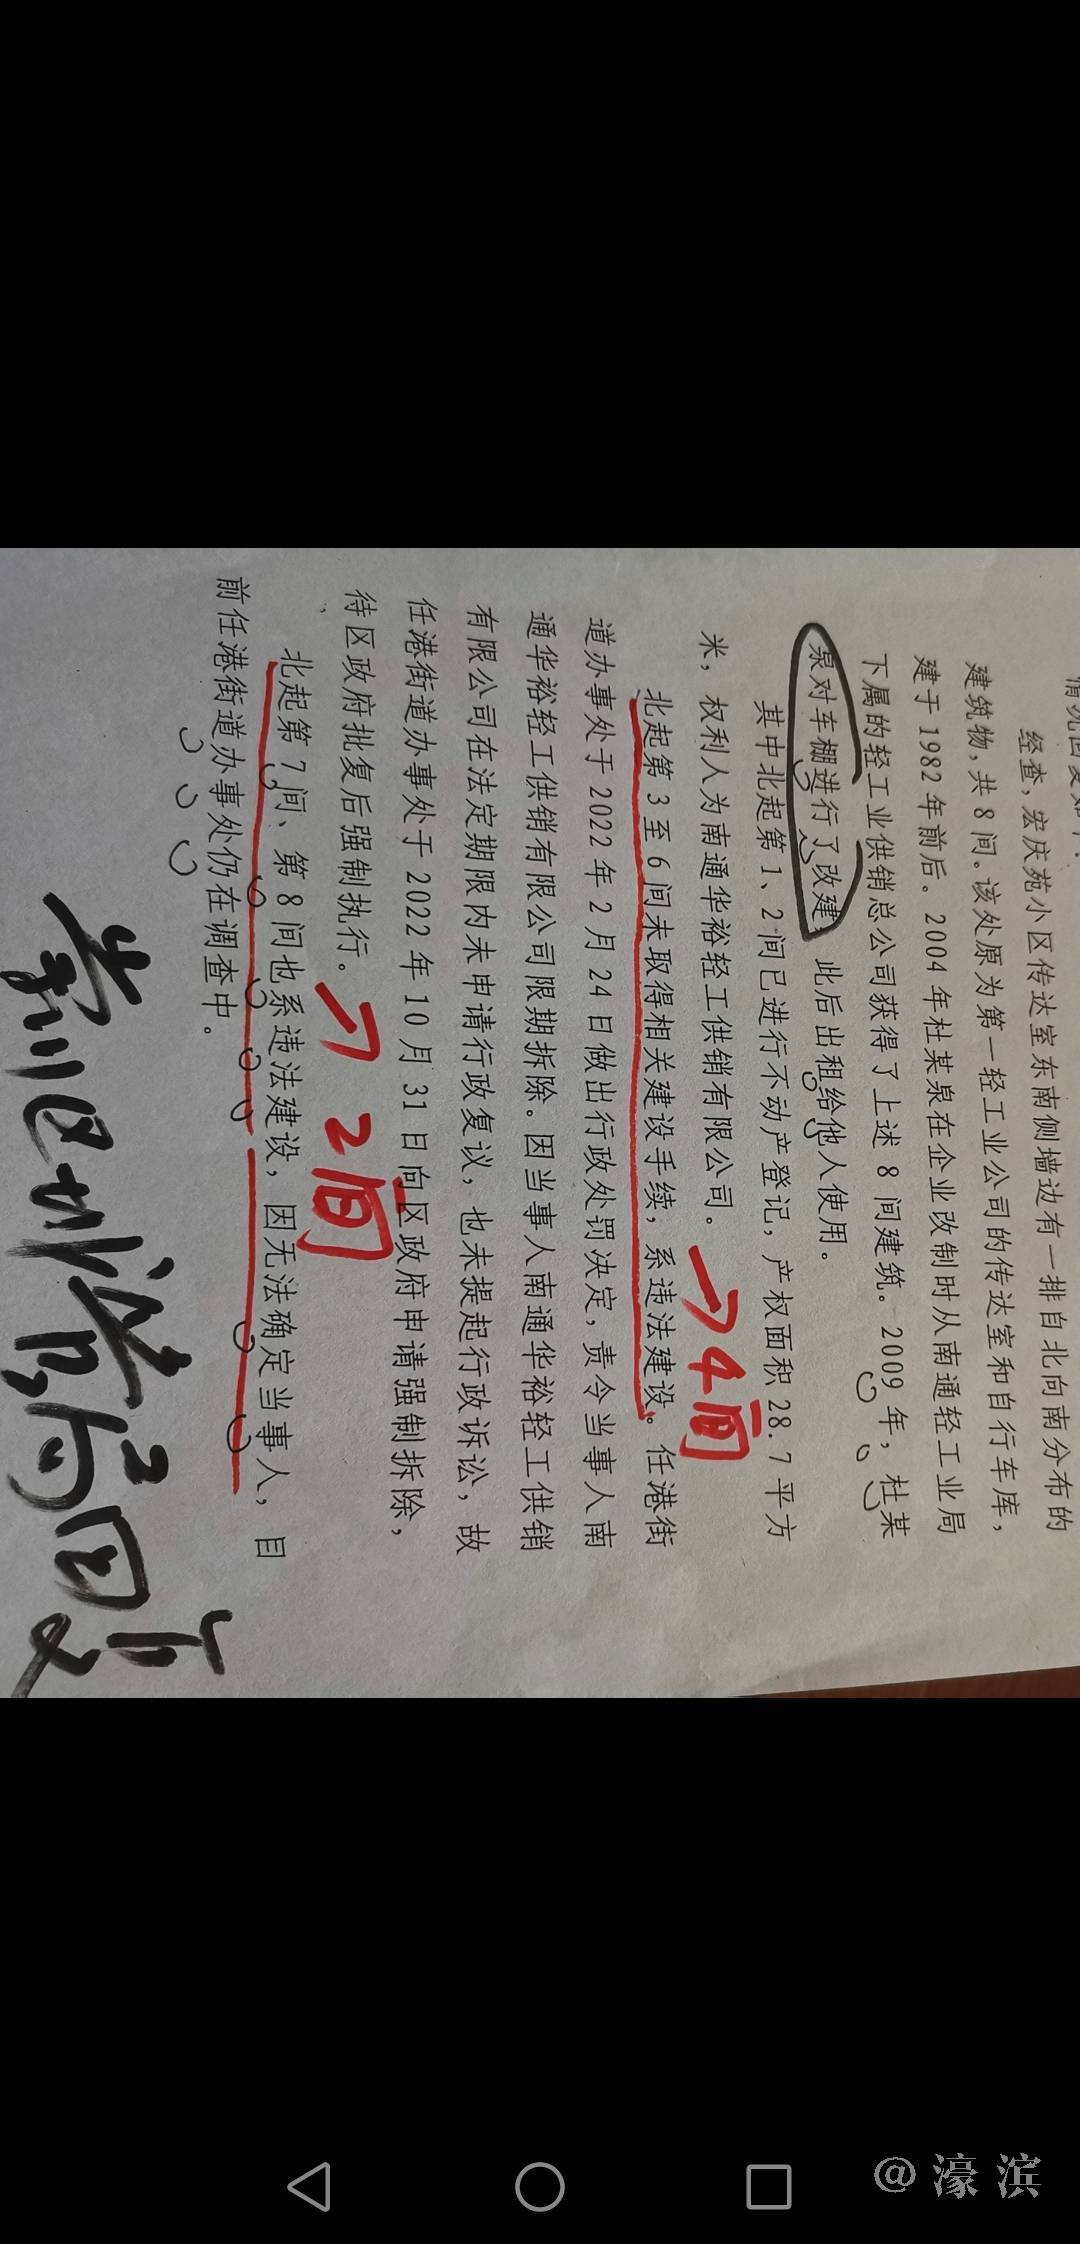 经查，宏庆苑小区传达室东南侧墙边有一排自北向南分布的
建筑物，共8间。该处原为第一轻工业公司的传达室和自行车库，
建于1982年前后。2004年杜某泉在企业改制时从南通轻工业局
下属的轻工业供销总公司获得了上述8间建筑。2009年，杜某
泉对车棚进行了改建，此后出租给他人使用。
其中北起第1、2间已进行不动产登记，产权面积28.7平方
米，权利人为南通华裕轻工供销有限公司。
→4间
北起第3至6间未取得相关建设手续，系违法建设。任港街
道办事处于2022年2月24日做出行政处罚决定，责令当事人南
通华裕轻工供销有限公司限期拆除。因当事人南通华裕轻工供销
有限公司在法定期限内未申请行政复议，也未提起行政诉讼，故
任港街道办事处于2022年10月31日向区政府申请强制拆除，
待区政府批复后强制执行。
2间
北起第7间、第8间也系违法建设，因无法确定当事人，目
前任港街道办事处仍在调查中。
@濠滨